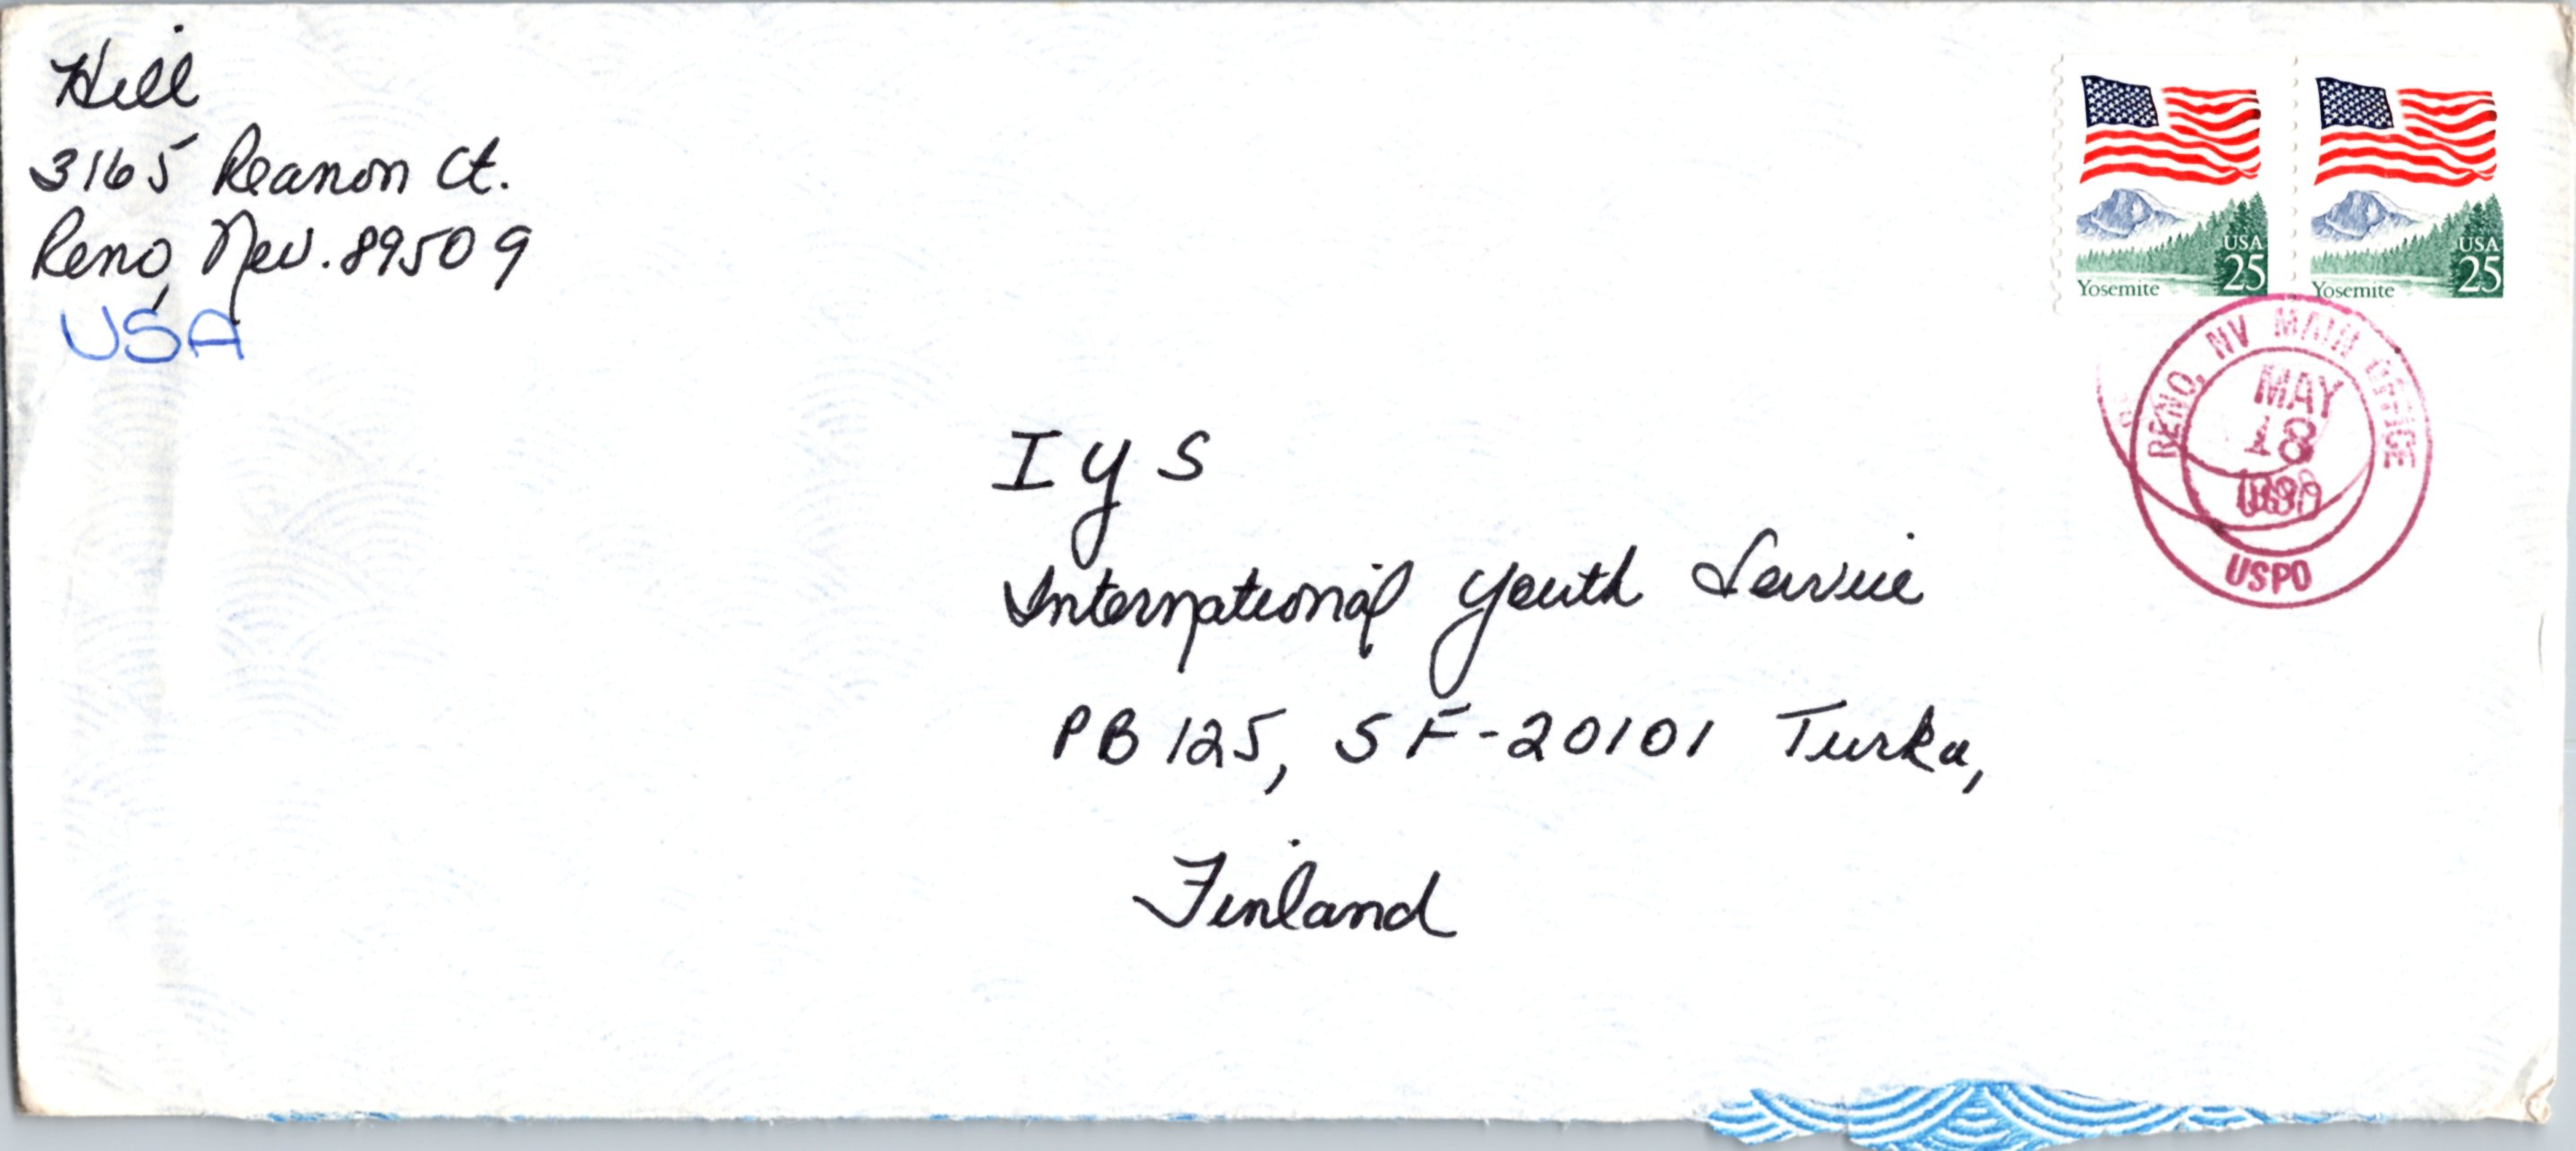 Hill
3165 Reanon Ct.
Reno, Nev. 89509
USA
USA
25
Yosemite
USA
25
Yosemite
RENO, NV MAIN OFFICE
MAY
18
USPO
I Y S
International Youth Service
PB 125, SF-20101 Turku,
Finland